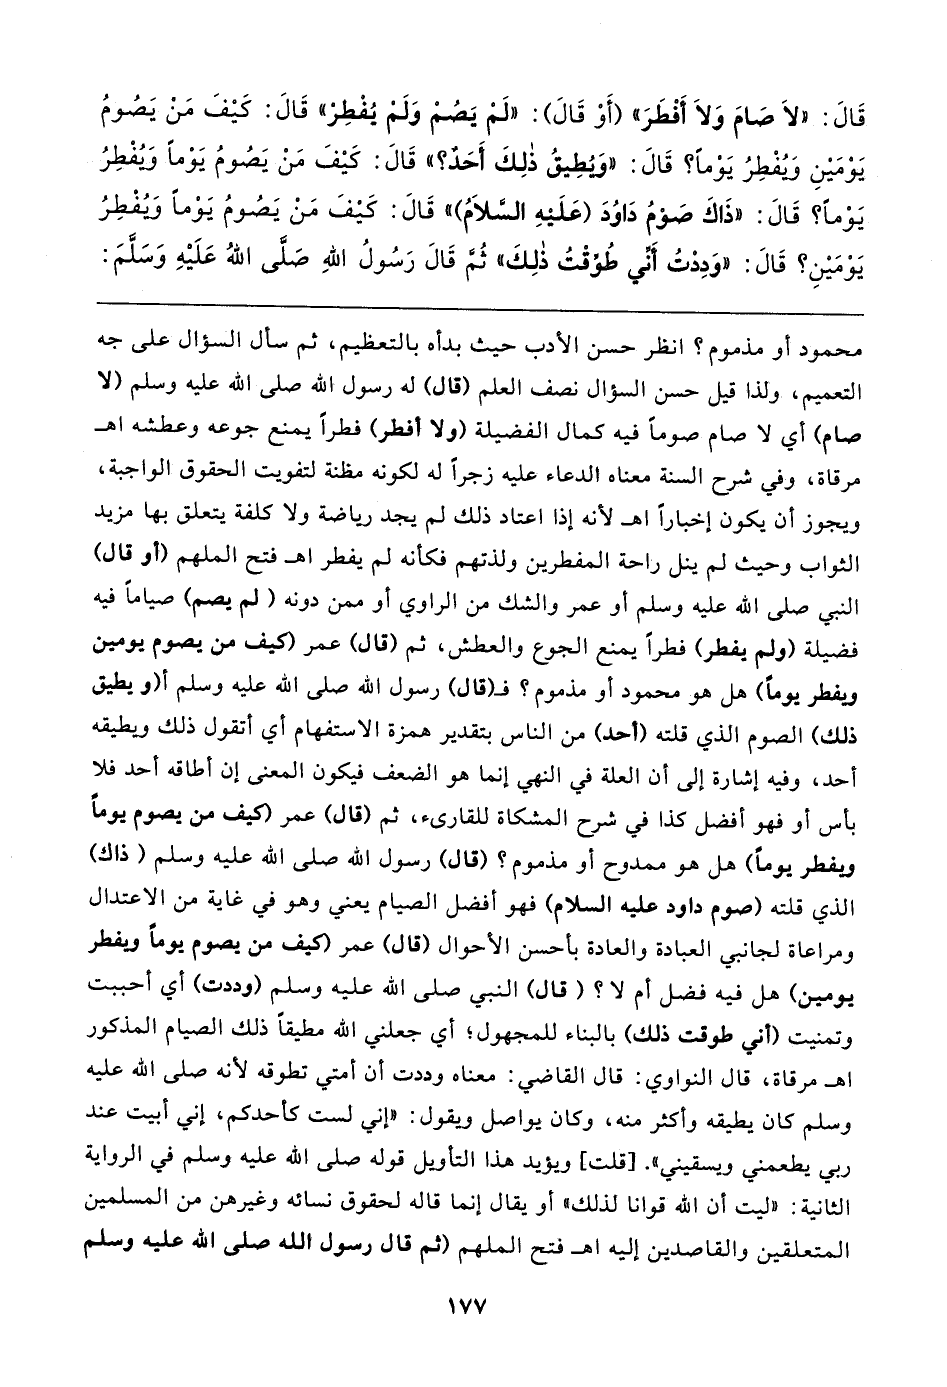 قَالَ: «لاَ صَامَ وَلاَ أَفْطَرَ» (أَوْ قَالَ): «لَمْ يَصُمْ وَلَمْ يُفْطِرْ» قَالَ: كَيْفَ مَنْ يَصُومُ
يَوْمَيْنِ وَيُفْطِرُ يَوْماً؟ قَالَ: «وَيُطِيقُ ذٰلِكَ أَحَدٌ؟» قَالَ: كَيْفَ مَنْ يَصُومُ يَوْماً وَيُفْطِرُ
يَوْماً؟ قَالَ: «ذَاكَ صَوْمُ دَاوُدَ (عَلَيْهِ السَّلاَمُ)» قَالَ: كَيْفَ مَنْ يَصُومُ يَوْماً وَيُفْطِرُ
يَوْمَيْنِ؟ قَالَ: «وَدِدْتُ أَنِّي طُوِّقْتُ ذٰلِكَ» ثُمَّ قَالَ رَسُولُ اللهِ صَلَّى اللهُ عَلَيْهِ وَسَلَّمَ:
محمود أو مذموم؟ انظر حسن الأدب حيث بدأه بالتعظيم، ثم سأل السؤال على جه
التعميم، ولذا قيل حسن السؤال نصف العلم (قال) له رسول الله صلى الله عليه وسلم (لا
صام) أي لا صام صوماً فيه كمال الفضيلة (ولا أفطر) فطراً يمنع جوعه وعطشه اهـ
مرقاة، وفي شرح السنة معناه الدعاء عليه زجراً له لكونه مظنة لتفويت الحقوق الواجبة،
ويجوز أن يكون إخباراً اهـ لأنه إذا اعتاد ذلك لم يجد رياضة ولا كلفة يتعلق بها مزيد
الثواب وحيث لم ينل راحة المفطرين ولذتهم فكأنه لم يفطر اهـ فتح الملهم (أو قال)
النبي صلى الله عليه وسلم أو عمر والشك من الراوي أو ممن دونه ( لم يصم) صياماً فيه
فضيلة (ولم يفطر) فطراً يمنع الجوع والعطش، ثم (قال) عمر (كيف من يصوم يومين
ويفطر يوماً) هل هو محمود أو مذموم؟ فـ(قال) رسول الله صلى الله عليه وسلم أ(و يطيق
ذلك) الصوم الذي قلته (أحد) من الناس بتقدير همزة الاستفهام أي أتقول ذلك ويطيقه
أحد، وفيه إشارة إلى أن العلة في النهي إنما هو الضعف فيكون المعنى إن أطاقه أحد فلا
بأس أو فهو أفضل كذا في شرح المشكاة للقارىء، ثم (قال) عمر (كيف من يصوم يوماً
ويفطر يوماً) هل هو ممدوح أو مذموم؟ (قال) رسول الله صلى الله عليه وسلم ( ذاك)
الذي قلته (صوم داود عليه السلام) فهو أفضل الصيام يعني وهو في غاية من الاعتدال
ومراعاة لجانبي العبادة والعادة بأحسن الأحوال (قال) عمر (كيف من يصوم يوماً ويفطر
يومين) هل فيه فضل أم لا؟ ( قال) النبي صلى الله عليه وسلم (وددت) أي أحببت
وتمنيت (أني طوقت ذلك) بالبناء للمجهول؛ أي جعلني الله مطيقاً ذلك الصيام المذكور
اهـ مرقاة، قال النواوي: قال القاضي: معناه وددت أن أمتي تطوقه لأنه صلى الله عليه
وسلم كان يطيقه وأكثر منه، وكان يواصل ويقول: «إني لست كأحدكم، إني أبيت عند
ربي يطعمني ويسقيني». [قلت] ويؤيد هذا التأويل قوله صلى الله عليه وسلم في الرواية
الثانية: «ليت أن الله قوانا لذلك» أو يقال إنما قاله لحقوق نسائه وغيرهن من المسلمين
المتعلقين والقاصدين إليه اهـ فتح الملهم (ثم قال رسول الله صلى الله عليه وسلم
١٧٧